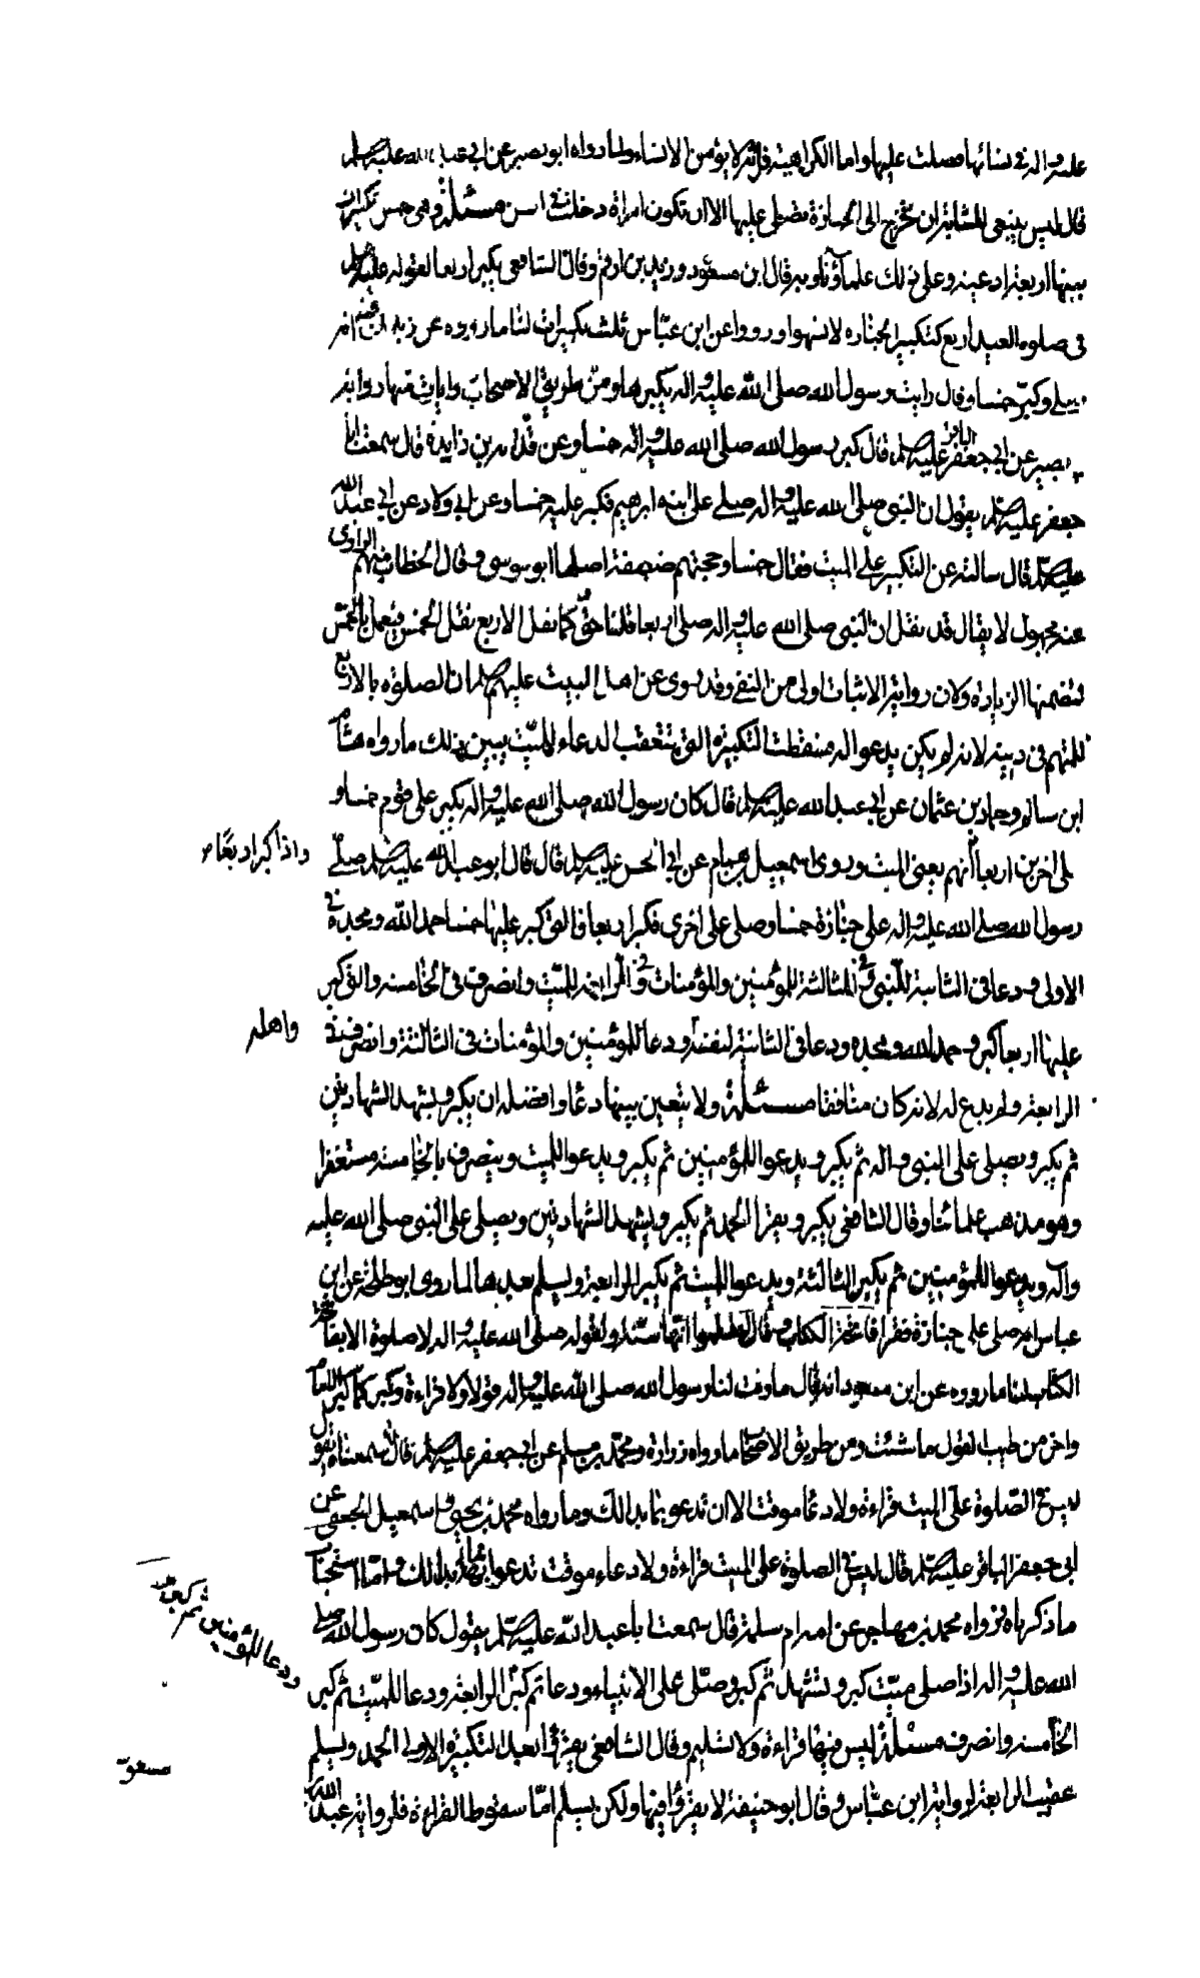 عليه واله في نسائها فصلت عليها واما الكراهية فلانه لا يؤمن الافتتان ولما رواه ابو بصير عن ابي عبد الله عليه السلم
قال ليس ينبغي للمشابة ان تخرج الى الجنازة تصلي عليها الا ان تكون امراة دخلت في السن مسئلة وهي خمس تكبيرات
بينها اربعة ادعية وعلى ذلك علماؤنا وبه قال ابن مسعود وزيد بن ارقم وقال الشافعي يكبر اربعا لقوله عليه السلم
في صلوة العيد اربع كتكبير الجنازه لا تسهوا ورووا عن ابن عباس ثلث تكبيرات لنا ما رووه عن زيد بن ارقم انه
صلى وكبر خمسا وقال رايت رسول الله صلى الله عليه واله يكبرها ومن طريق الاصحاب روايات منها رواية
بصير عن ابي جعفر الباقر عليه السلم قال كبر رسول الله صلى الله عليه واله خمسا وعن قدامه بن زايدة قال سمعت ابا
جعفر عليه السلم يقول ان النبي صلى الله عليه واله صلى على ابنه ابراهيم فكبر عليه خمسا وعن ابي ولاد عن ابي عبد الله
عليه السلم قال سالته عن التكبير على الميت فقال خمسا وحجتهم ضعيفة اصلها ابو موسى وقال الخطابي منهم الراوي
عنه مجهول لا يقال قد نقل ان النبي صلى الله عليه واله صلى اربعا قلنا حق كما نقل الاربع نقل الخمس فيعمل بالخمس
لتضمنها الزيادة ولان رواية الاثبات اولى من النفي وقد روى عن اهل البيت عليهم السلم ان الصلوة بالاربع
للمتهم في دينه لانه لم يكن يدعو له فسقطت التكبيرة التي يتعقب الدعاء للميت يبين ذلك ما رواه هشام
ابن سالم وحماد بن عثمان عن ابي عبد الله عليه السلم قال كان رسول الله صلى الله عليه واله يكبر على قوم خمسا و
على اخرين اربعا اتهم يعني الميت وروى اسمعيل بن همام عن ابي الحسن عليه السلم قال قال ابو عبد الله عليه السلم صلى
واذا كبر اربعا
رسول الله صلى الله عليه واله على جنازة خمسا وصلى على اخرى فكبر اربعا فالتي كبر عليها خمسا حمد الله ومجده في
الاولى ودعا في الثانية للنبي وفي الثالثة للمؤمنين والمؤمنات وفي الرابعة للميت وانصرف في الخامسه والتي كبر
عليها اربعا كبر وحمد الله ومجده ودعا في الثانية لنفسه ودعا للمؤمنين والمؤمنات في الثالثة وانصرف في
واهله
الرابعة ولم يدع له لانه كان منافقا مسئلة ولا يتعين بينها دعاء وافضله ان يكبر ويشهد الشهادتين
ثم يكبر ويصلي على النبي واله ثم يكبر ويدعوا للمؤمنين ثم يكبر ويدعوا للميت وينصرف بالخامسة مستغفرا
وهو مذهب علمائنا وقال الشافعي يكبر ويقرا الحمد ثم يكبر ويشهد الشهادتين ويصلي على النبي صلى الله عليه
واله ويدعوا للمؤمنين ثم يكبر الثالثة ويدعوا للميت ثم يكبر الرابعة ويسلم بعدها لما روى ابو طلحة عن ابن
عباس انه صلى على جنازة فقرا فاتحة الكتاب وقال لتعلموا انها سنة ولقوله صلى الله عليه واله لا صلوة الا بفاتحة
الكتاب لنا ما رووه عن ابن مسعود انه قال ما وقت لنا رسول الله صلى الله عليه واله قولا ولا قراءة وكبر كما كبر الامام
واختر من طيب القول ما شئت ومن طريق الاصحاب ما رواه زرارة ومحمد بن مسلم عن ابي جعفر عليه السلم قال سمعناه يقول
ليس في الصلوة على الميت قراءة ولا دعا موقت الا ان تدعو بما بدا لك وما رواه محمد بن يحيى واسمعيل الجعفي عن
ابي جعفر الباقر عليه السلم قال ليس في الصلوة على الميت قراءة ولا دعاء موقت تدعوا بما بدا لك واما استحباب
ما ذكرناه فرواه محمد بن مهاجر عن امه ام سلمة قال سمعت ابا عبد الله عليه السلم يقول كان رسول الله صلى
الله عليه واله اذا صلى ميت كبر وتشهد ثم كبر وصلى على الانبياء ودعا ثم كبر الرابعة ودعا للميت ثم كبر
ودعا للمؤمنين ثم كبر
الخامسة وانصرف مسئلة ليس فيها قراءة ولا تسليم وقال الشافعي يقرا بعد التكبيرة الاولى الحمد ويسلم
عقيب الرابعة لرواية ابن عباس وقال ابو حنيفة لا يقرؤ فيها ولكن يسلم اما سقوط القراءة فلرواية عبد الله
مسعود